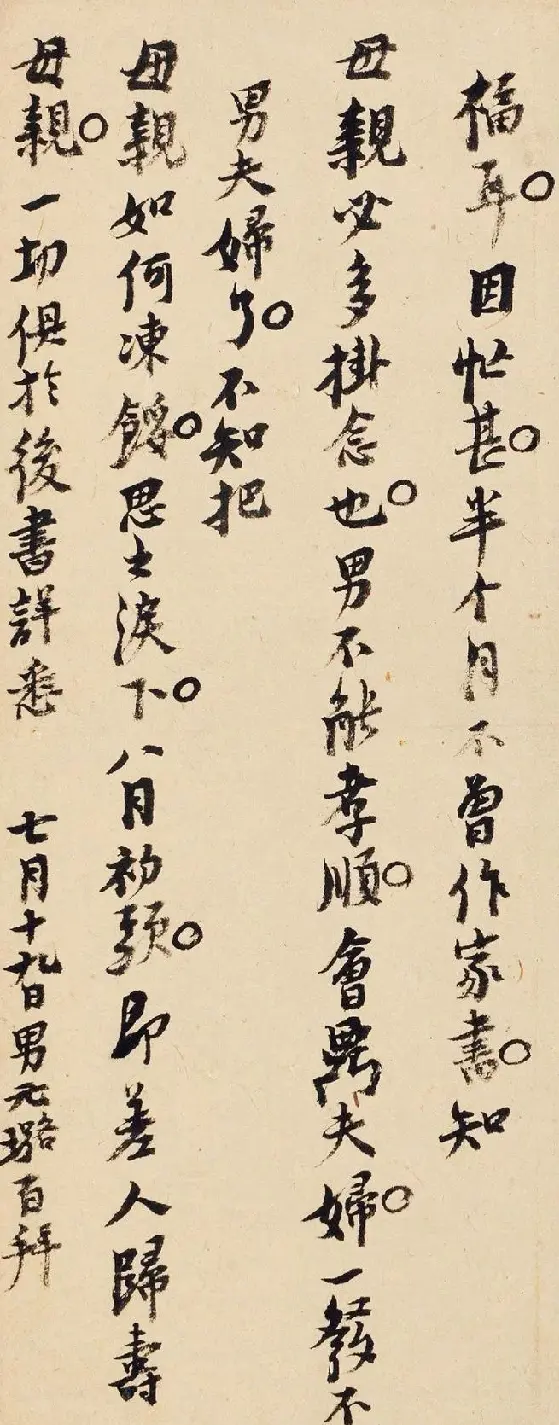 福耳。因忙甚。半个月不曾作家書。知
母親必多掛念也。男不能孝順。會鼎夫婦。一發不
男夫婦了。不知把
母親如何凍餒。思之淚下。八月初頭。即差人歸壽
母親。一切俱於後書詳悉 七月十九日男元璐百拜